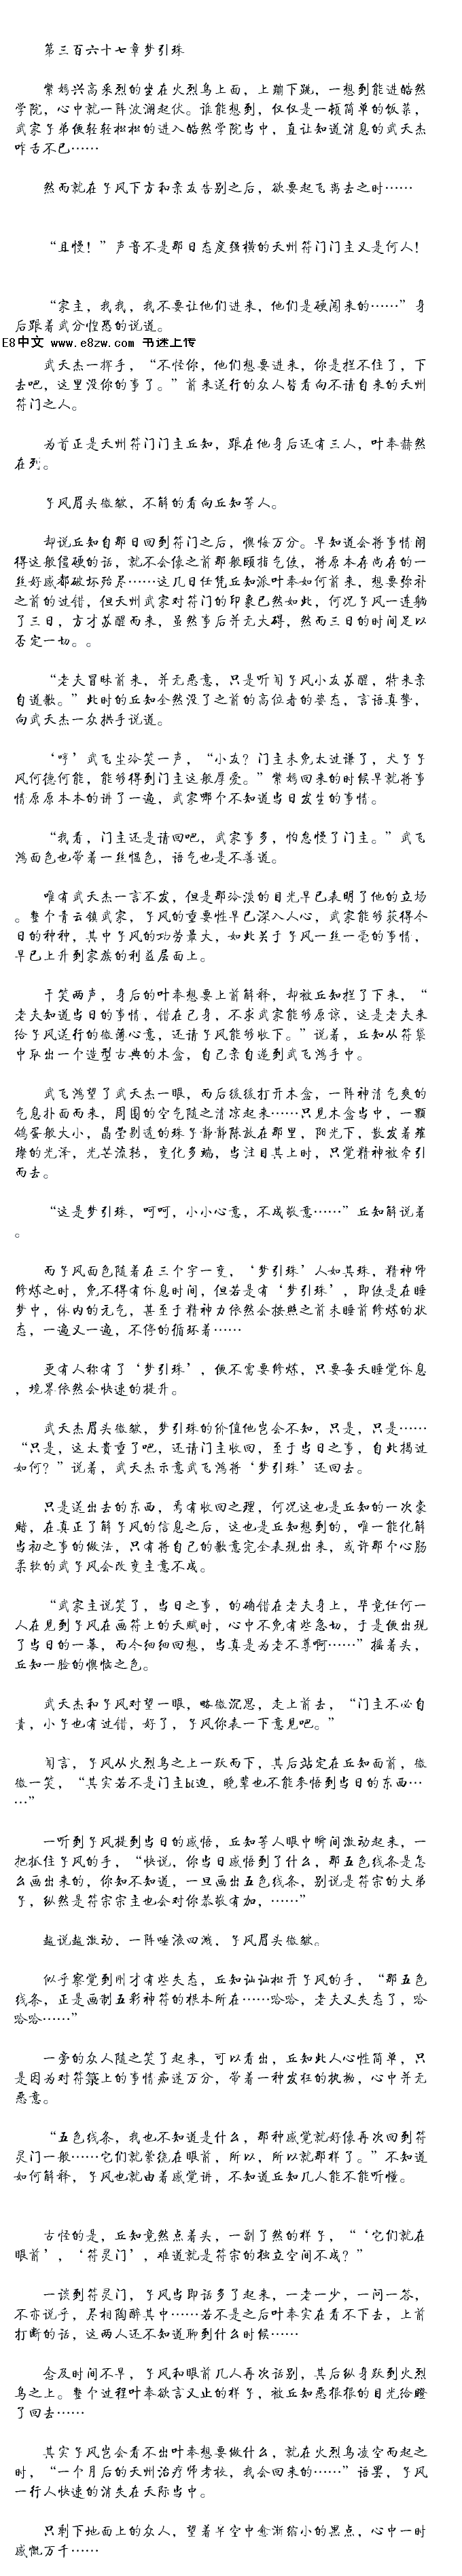 第三百六十七章梦引珠
紫嫣兴高采烈的坐在火烈鸟上面，上蹦下跳，一想到能进皓然
学院，心中就一阵波澜起伏。谁能想到，仅仅是一顿简单的饭菜，
武家子弟便轻轻松松的进入皓然学院当中，直让知道消息的武天杰
咋舌不已……
然而就在子风下方和亲友告别之后，欲要起飞离去之时……
“且慢！”声音不是那日态度强横的天州符门门主又是何人！
“家主，我，我，我不要让他们进来，他们是硬闯来的……”身
后跟着武分惶恐的说道。
E8中文 www.e8zw.com 书迷上传
武天杰一挥手，“不怪你，他们想要进来，你是拦不住了，下
去吧，这里没你的事了。”前来送行的众人皆看向不请自来的天州
符门之人。
为首正是天州符门门主丘知，跟在他身后还有三人，叶奉赫然
在列。
子风眉头微皱，不解的看向丘知等人。
却说丘知自那日回到符门之后，懊恼万分。早知道会将事情闹
得这般僵硬的话，就不会像之前那般颐指气使，将原本存尚在的一
丝好感都破坏殆尽……这几日任凭丘知派叶奉如何前来，想要弥补
之前的过错，但天州武家对符门的印象已然如此，何况子风一连躺
了三日，方才苏醒而来，虽然事后并无大碍，然而三日的时间足以
否定一切。。
“老夫冒昧前来，并无恶意，只是听闻子风小友苏醒，特来亲
自道歉。”此时的丘知全然没了之前的高位者的姿态，言语真挚，
向武天杰一众拱手说道。
‘哼’武飞尘冷笑一声，“小友？门主未免太过谦了，犬子子
风何德何能，能够得到门主这般厚爱。”紫嫣回来的时候早就将事
情原原本本的讲了一遍，武家哪个不知道当日发生的事情。
“我看，门主还是请回吧，武家事多，怕怠慢了门主。”武飞
鸿面色也带着一丝愠色，语气也是不善道。
唯有武天杰一言不发，但是那冷淡的目光早已表明了他的立场
。整个青云镇武家，子风的重要性早已深入人心，武家能够获得今
日的种种，其中子风的功劳最大，如此关于子风一丝一毫的事情，
早已上升到家族的利益层面上。
干笑两声，身后的叶奉想要上前解释，却被丘知拦了下来，“
老夫知道当日的事情，错在己身，不求武家能够原谅，这是老夫来
给子风送行的微薄心意，还请子风能够收下。”说着，丘知从符袋
中取出一个造型古典的木盒，自己亲自递到武飞鸿手中。
武飞鸿望了武天杰一眼，而后缓缓打开木盒，一阵神清气爽的
气息扑面而来，周围的空气随之清凉起来……只见木盒当中，一颗
鸽蛋般大小，晶莹剔透的珠子静静陈放在那里，阳光下，散发着璀
璨的光泽，光芒流转，变化多端，当注目其上时，只觉精神被牵引
而去。
“这是梦引珠，呵呵，小小心意，不成敬意……”丘知解说着
。
而子风面色随着在三个字一变，‘梦引珠’人如其珠，精神师
修炼之时，免不得有休息时间，但若是有‘梦引珠’，即使是在睡
梦中，体内的元气，甚至于精神力依然会按照之前未睡前修炼的状
态，一遍又一遍，不停的循环着……
更有人称有了‘梦引珠’，便不需要修炼，只要每天睡觉休息
，境界依然会快速的提升。
武天杰眉头微皱，梦引珠的价值他岂会不知，只是，只是……
“只是，这太贵重了吧，还请门主收回，至于当日之事，自此揭过
如何？”说着，武天杰示意武飞鸿将‘梦引珠’还回去。
只是送出去的东西，焉有收回之理，何况这也是丘知的一次豪
赌，在真正了解子风的信息之后，这也是丘知想到的，唯一能化解
当初之事的做法，只有将自己的歉意完全表现出来，或许那个心肠
柔软的武子风会改变主意不成。
“武家主说笑了，当日之事，的确错在老夫身上，毕竟任何一
人在见到子风在画符上的天赋时，心中不免有些急切，于是便出现
了当日的一幕，而今细细回想，当真是为老不尊啊……”摇着头，
丘知一脸的懊恼之色。
武天杰和子风对望一眼，略微沉思，走上前去，“门主不必自
责，小子也有过错，好了，子风你表一下意见吧。”
闻言，子风从火烈鸟之上一跃而下，其后站定在丘知面前，微
微一笑，“其实若不是门主bi迫，晚辈也不能参悟到当日的东西…
…”
一听到子风提到当日的感悟，丘知等人眼中瞬间激动起来，一
把抓住子风的手，“快说，你当日感悟到了什么，那五色线条是怎
么画出来的，你知不知道，一旦画出五色线条，别说是符宗的大弟
子，纵然是符宗宗主也会对你恭敬有加，……”
越说越激动，一阵唾液四溅，子风眉头微皱。
似乎察觉到刚才有些失态，丘知讪讪松开子风的手，“那五色
线条，正是画制五彩神符的根本所在……哈哈，老夫又失态了，哈
哈哈……”
一旁的众人随之笑了起来，可以看出，丘知此人心性简单，只
是因为对符箓上的事情痴迷万分，带着一种发狂的执拗，心中并无
恶意。
“五色线条，我也不知道是什么，那种感觉就好像再次回到符
灵门一般……它们就萦绕在眼前，所以，所以就那样了。”不知道
如何解释，子风也就由着感觉讲，不知道丘知几人能不能听懂。
古怪的是，丘知竟然点着头，一副了然的样子，“‘它们就在
眼前’，‘符灵门’，难道就是符宗的独立空间不成？”
一谈到符灵门，子风当即话多了起来，一老一少，一问一答，
不亦说乎，尽相陶醉其中……若不是之后叶奉实在看不下去，上前
打断的话，这两人还不知道聊到什么时候……
念及时间不早，子风和眼前几人再次话别，其后纵身跃到火烈
鸟之上。整个过程叶奉欲言又止的样子，被丘知恶狠狠的目光给瞪
了回去……
其实子风岂会看不出叶奉想要做什么，就在火烈鸟凌空而起之
时，“一个月后的天州治疗师考核，我会回来的……”语罢，子风
一行人快速的消失在天际当中。
只剩下地面上的众人，望着半空中愈渐缩小的黑点，心中一时
感慨万千……